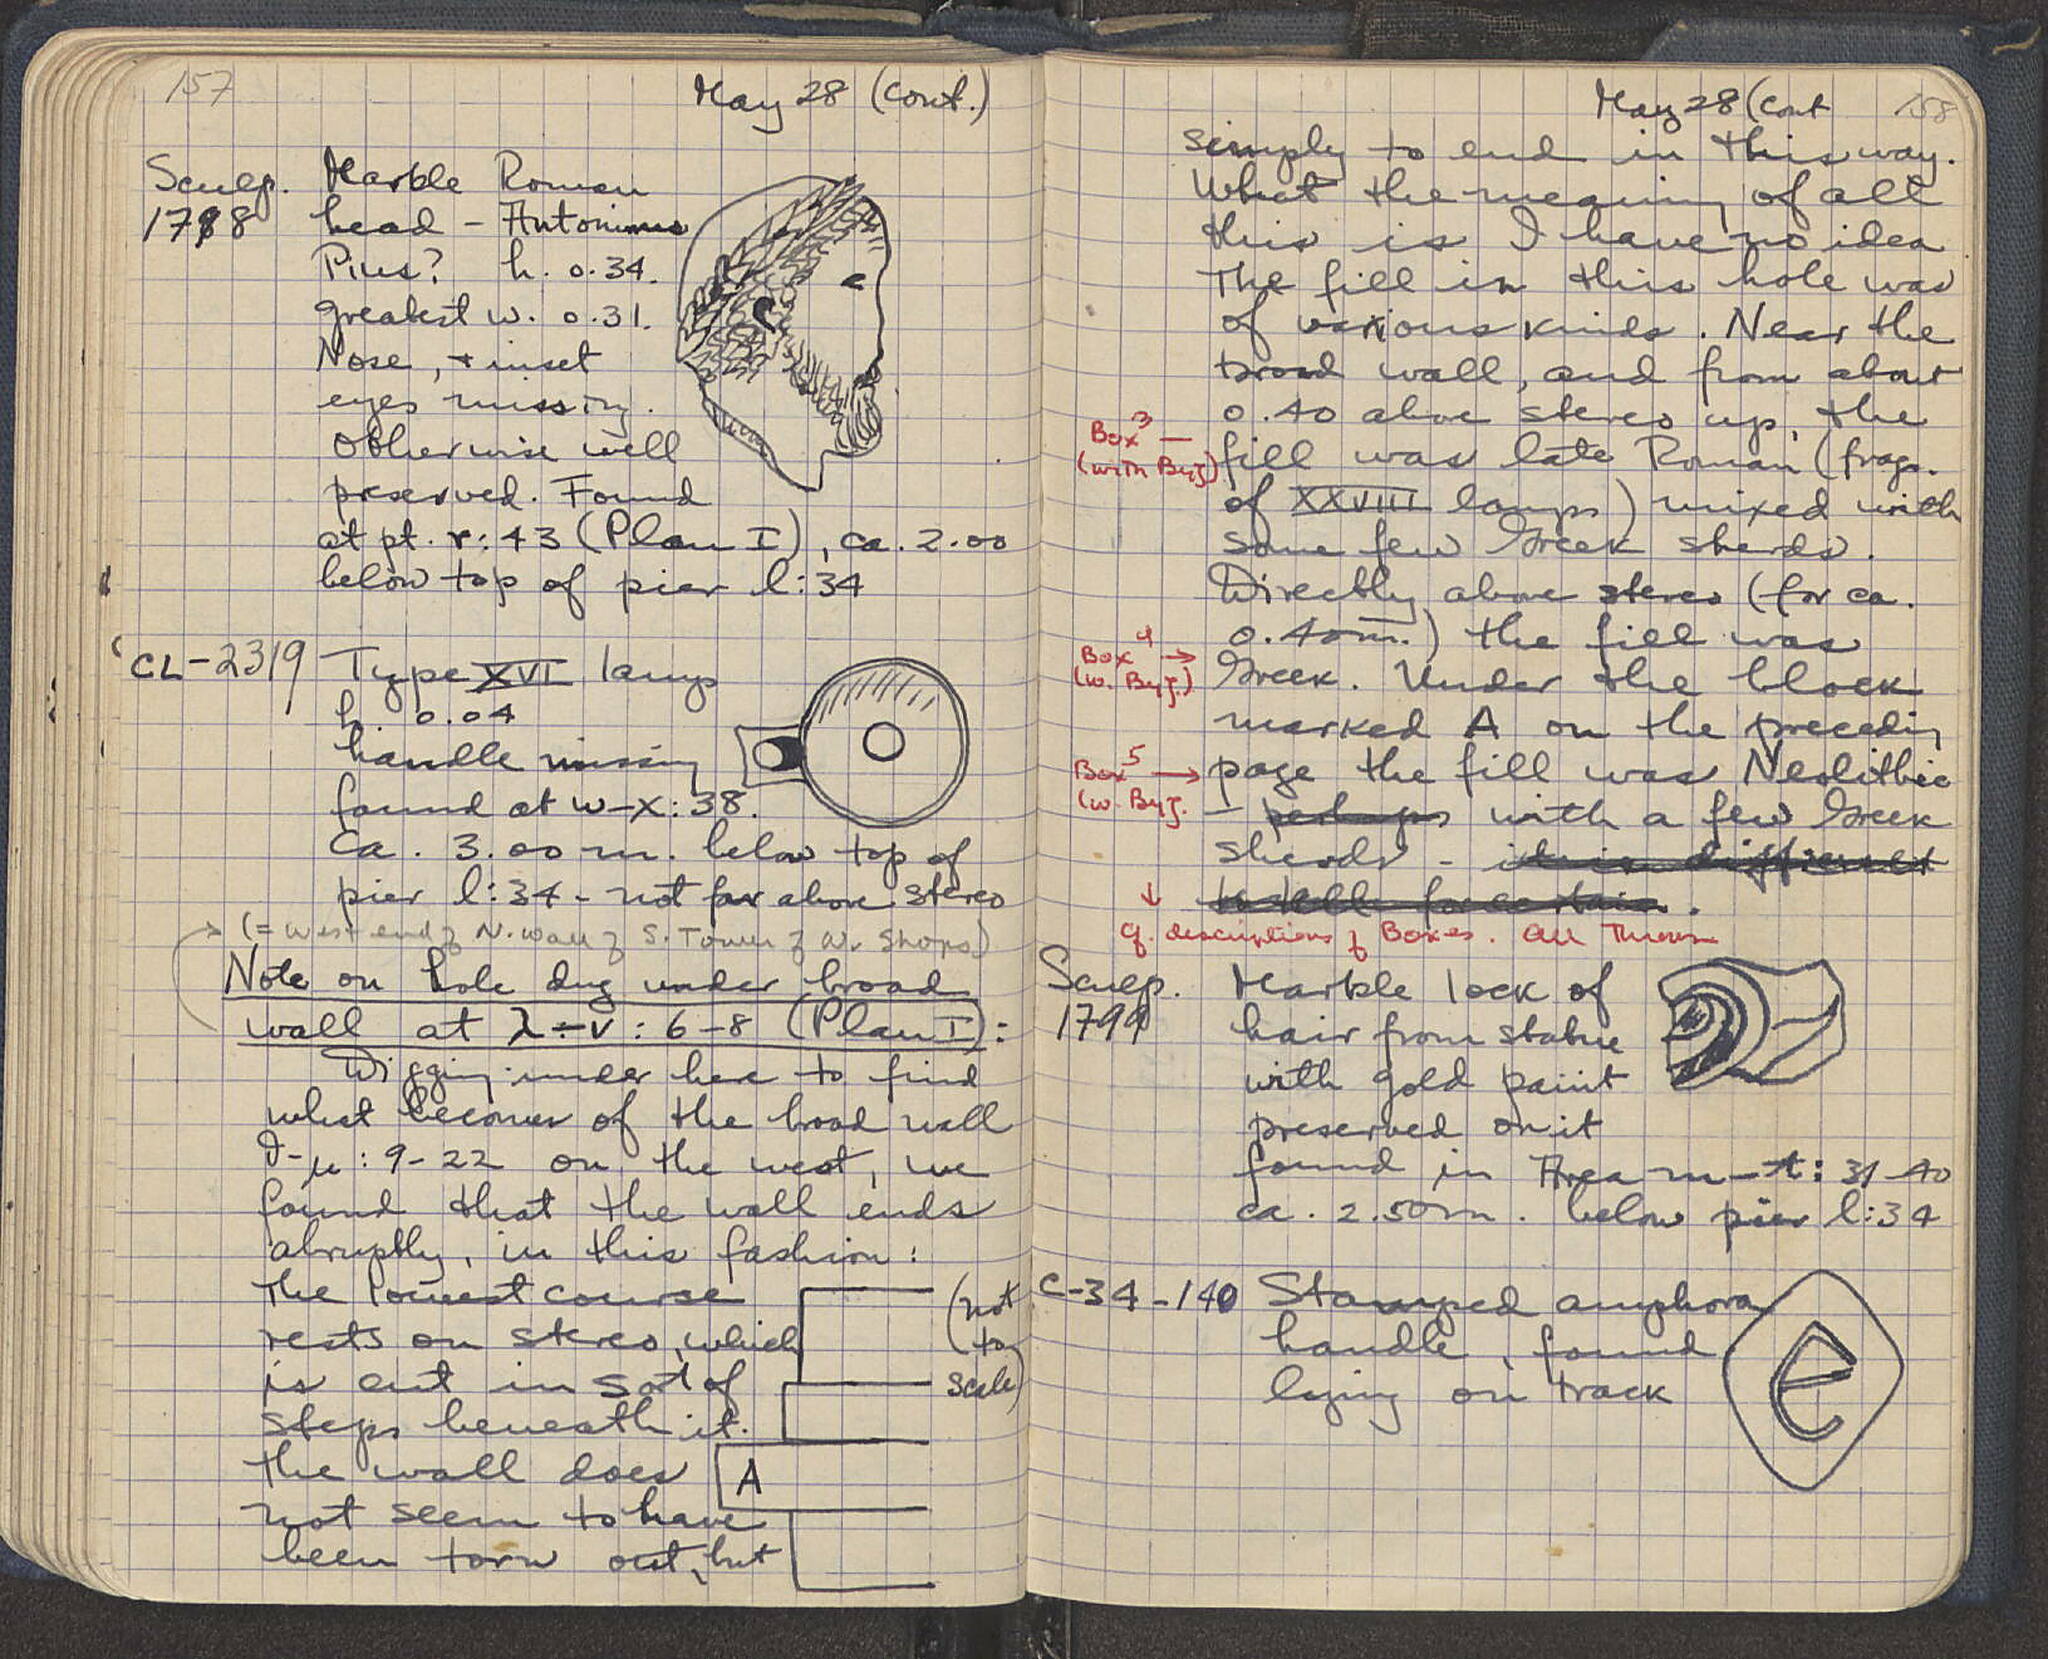 157
May 28 (Cont.)
Sculp. Marble Roman
1798 head - Antoninus
Pius? h. 0.34.
greatest w. 0.31.
Nose, + inset
eyes missing.
Otherwise well
preserved. Found
at pt. r:43 (Plan I), ca. 2.00
below top of pier l:34
CL-2319 Type XVI lamp
h. 0.04
handle missing
found at w-x:38.
Ca. 3.00 m. below top of
pier l:34 - not far above stereo
(= West end of N. Wall of S. Tower of W. Shops)
Note on hole dug under broad
wall at λ-ν: 6-8 (Plan I):
Digging under here to find
what becomes of the broad wall
-μ: 9-22 on the west, we
found that the wall ends
abruptly, in this fashion:
The lowest course
rests on stereo, which
is cut in sort of
steps beneath it.
The wall does
not seem to have
been torn out, but
(not
to
scale)
A
May 28 (Cont
158
simply to end in this way.
What the meaning of all
this is I have no idea
The fill in this hole was
of various kinds. Near the
broad wall, and from about
0.40 above stereo up, the
Box 3 —
(with Byz) fill was late Roman (frags.
of XXVIII lamps) mixed with
some few Greek sherds.
Directly above stereo (for ca.
0.40m.) the fill was
Box 4 →
(w. Byz.) Greek. Under the block
marked A on the preceding
Box 5 → page the fill was Neolithic
(w. Byz. - perhaps with a few Greek
sherds - it is difficult
to tell for certain.
↓
cf. descriptions of Boxes. All Thrown
Sculp. Marble lock of
1799 hair from statue
with gold paint
preserved on it
found in Area m-t: 31-40
ca. 2.50m. below pier l:34
C-34-140 Stamped amphora
handle, found
lying on track
e